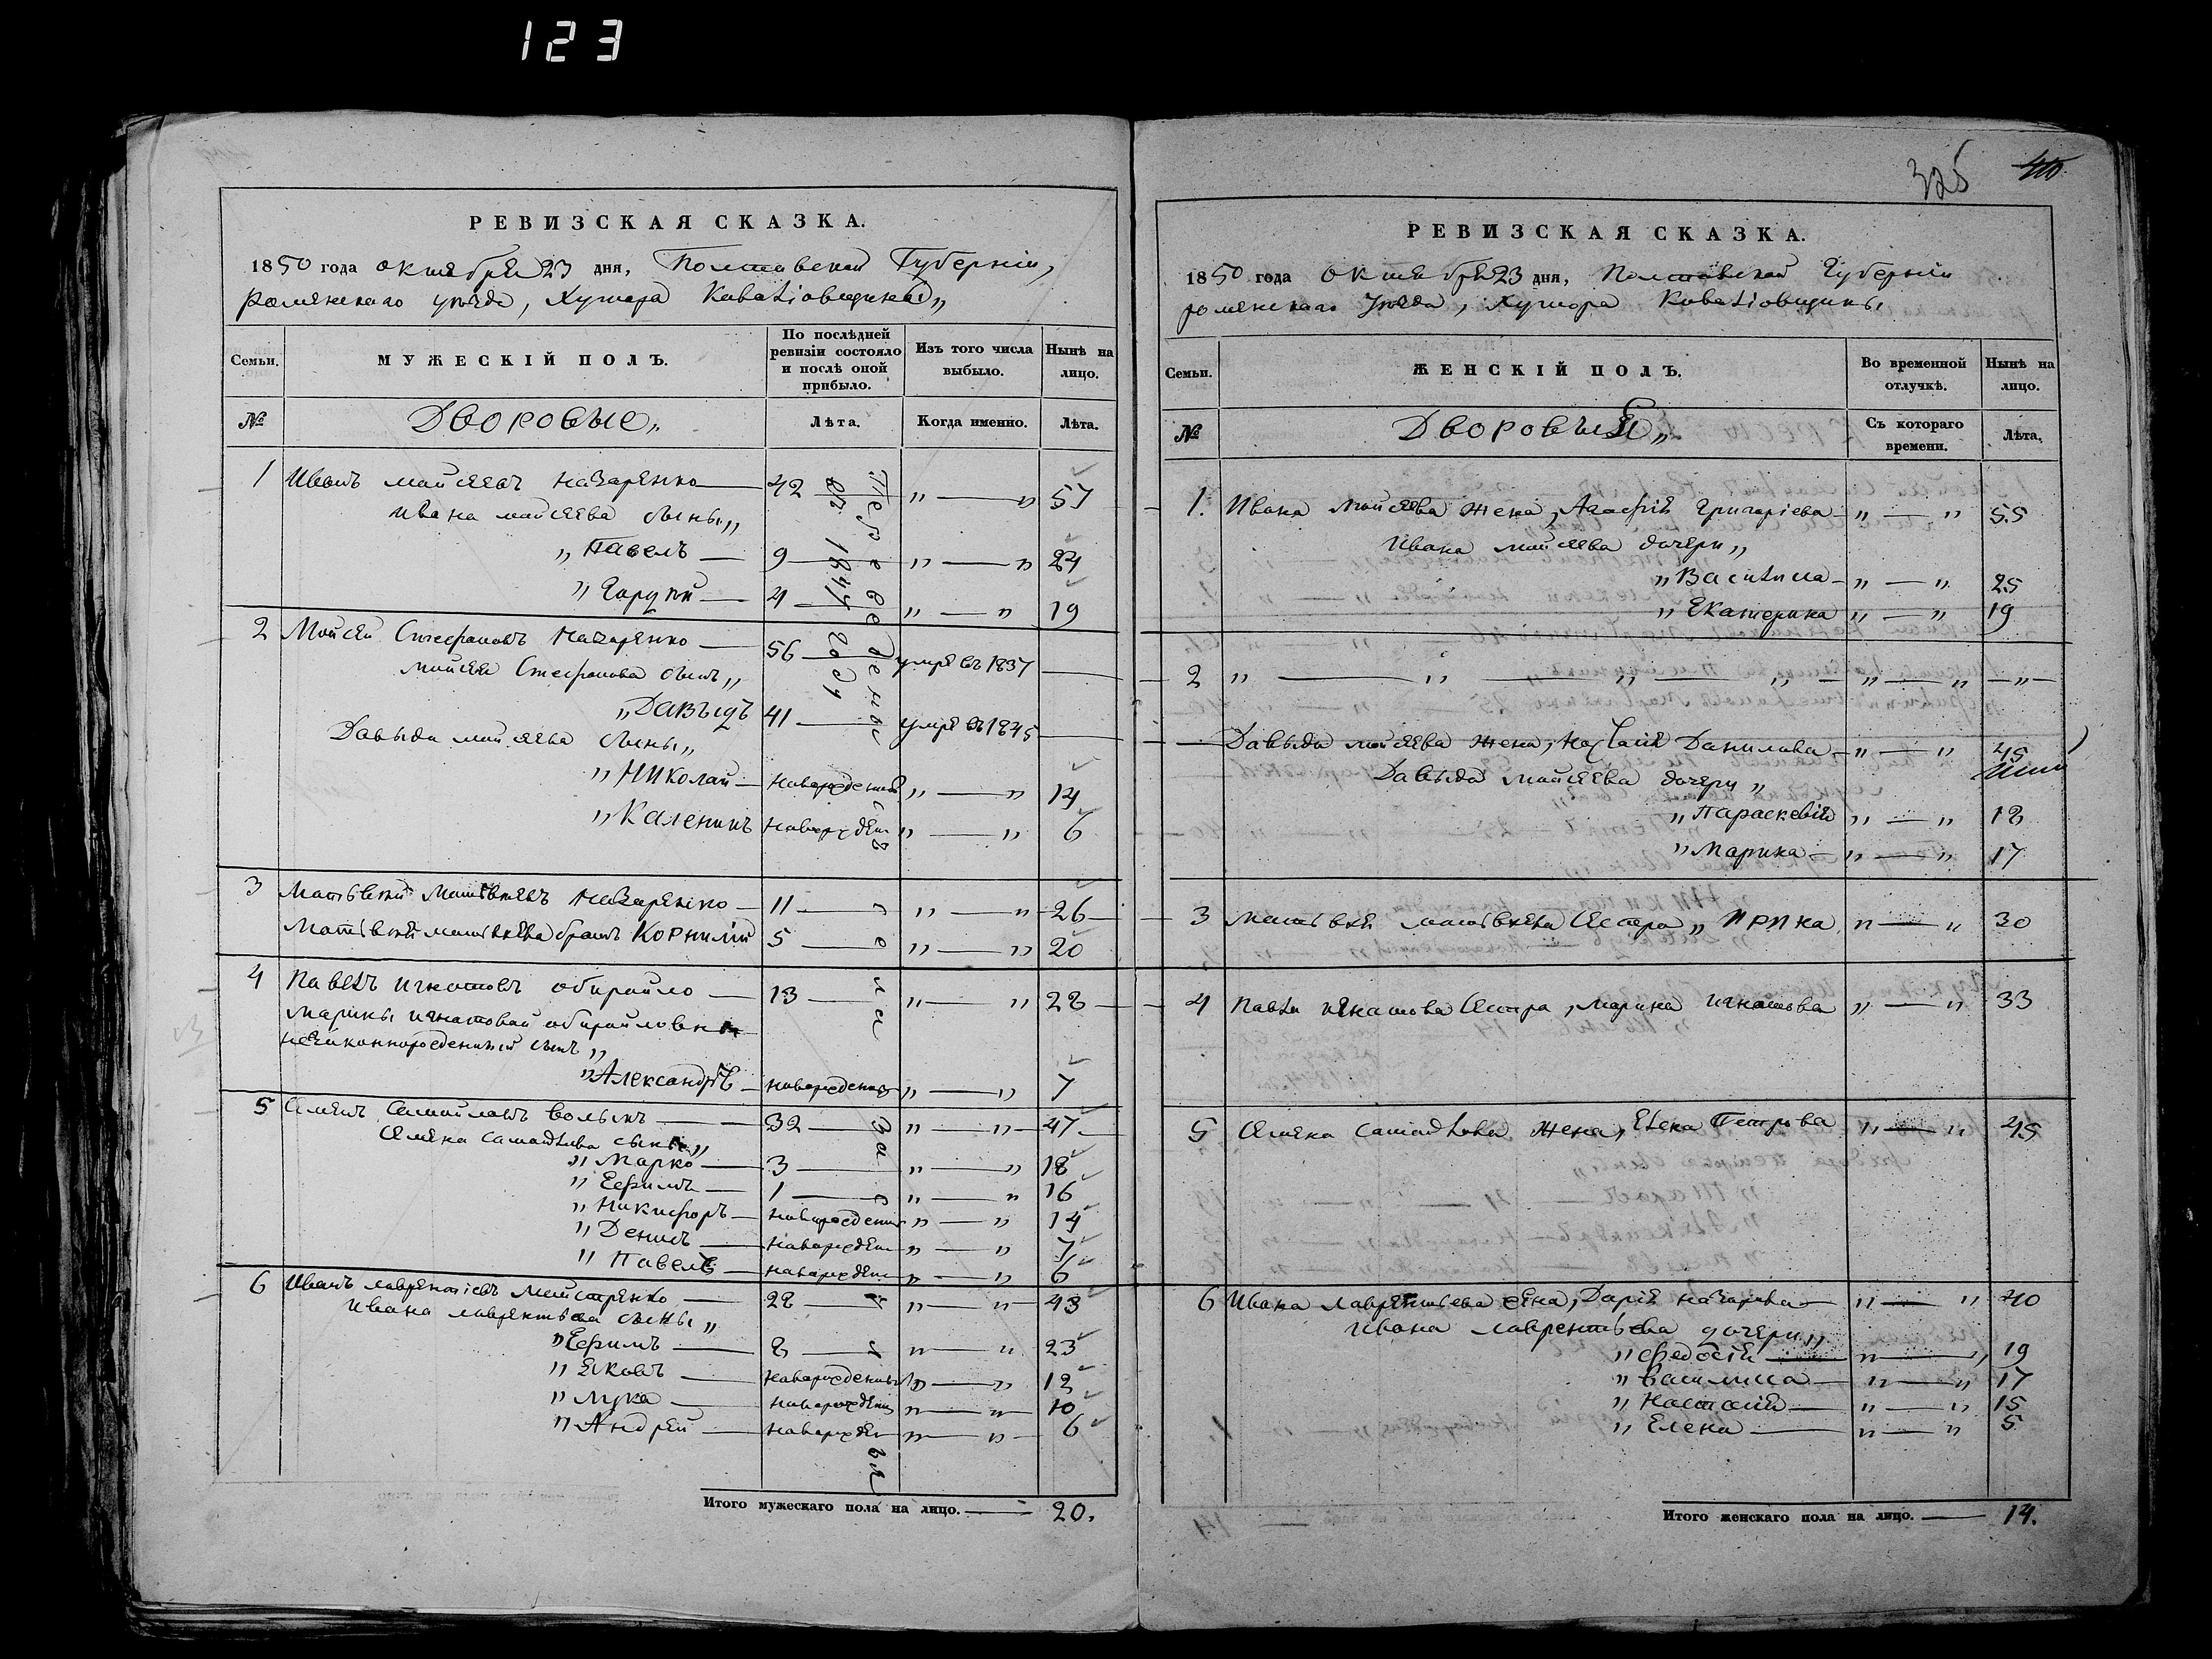 123
РЕВИЗСКАЯ СКАЗКА.
1850 года октября 23 дня, Полтавской Губерніи,
роменскаго уезда, Хутора
Семьи. МУЖЕСКІЙ ПОЛЪ. По послѣдней ревизіи состояло и послѣ оной прибыло. Изъ того числа выбыло. Нынѣ на лицо.
№ Дворовые„ Лѣта. Когда именно. Лѣта.
1 Иванъ Мойсеевъ Назаренко — 42 „ — „ 57
Ивана Мойсеева сыны„
„ Павелъ — 9 „ — „ 24
„ — 4 „ — „ 19
2 Мойсей Стефановъ Назаренко — 56 умре въ 1837 —
Мойсея Стефанова сынъ„
„Давыдъ 41 — умре въ 1845 —
Давыда Мойсеева сыны„
„Николай — новорожденный „ — „ 14
„Каленикъ новорожден „ — „ 6
3 Матвей Матвеевъ Назаренко — 11 — „ — „ 26
Матвея Матвеева братъ Корнилій 5 — „ — „ 20
4 Павелъ Игнатовъ обирайло — 13 — „ — „ 28
Марины Игнатовой обирайловны
незаконнорожденный сынъ„
„Александръ — новорожденны „ — „ 7
5 Семенъ Самойловъ — 32 — „ — „ 47
Семена Самойлова сыны„
„ Марко — 3 — „ — „ 18
„ Ефимъ — 1 — „ — „ 16
„ Никифоръ — новорожденны „ — „ 14
„ Денисъ — новорожден „ — „ 7
„ Павелъ — новорожден „ — „ 6
6 Иванъ Лаврентіевъ — 28 — „ — „ 43
Ивана Лаврентьева сыны„
„Ефимъ — 8 — „ — „ 23
„ Яковъ — новорожденны „ — „ 12
„ Лука — новорожден „ — „ 10
„ Андрей — новорожден „ — „ 6
Переведены съ села
въ 1844 году
Итого мужескаго пола на лицо. — 20.
325
РЕВИЗСКАЯ СКАЗКА.
1850 года октября 23 дня, Полтавской Губерніи
роменскаго уезда, Хутора
Семьи. ЖЕНСКІЙ ПОЛЪ. Во временной отлучкѣ. Нынѣ на лицо.
№ Дворовыя„ Съ котораго времени. Лѣта.
1. Ивана Мойсеева жена, Агафія Григоріева „ — „ 55
Ивана Мойсеева дочери„
„Василиса — „ — „ 25
„Екатерина „ — „ 19
2 „ — „ — „ — „ — „ — „ — „ —
Давыда Мойсеева жена, Наталія Данилова — „ — „ 45
Давыда Мойсеева дочери„
„Параскевія „ — „ 18
„Марина — „ — „ 17
3 Матвея Матвеева сестра„ Ирина „ — „ 30
4 Павла Игнатова сестра, Марина Игнатова „ — „ 33
5 Семена Самойлова жена, Елена Петрова „ — „ 45
6 Ивана Лаврентьева жена, Дарія Назарова — „ — „ 40
Ивана Лаврентьева дочери„
„Федосія — „ — „ 19
„Василиса — „ — „ 17
„Настасія — „ — „ 15
„Елена — „ — „ 5
Итого женскаго пола на лицо. — 14.